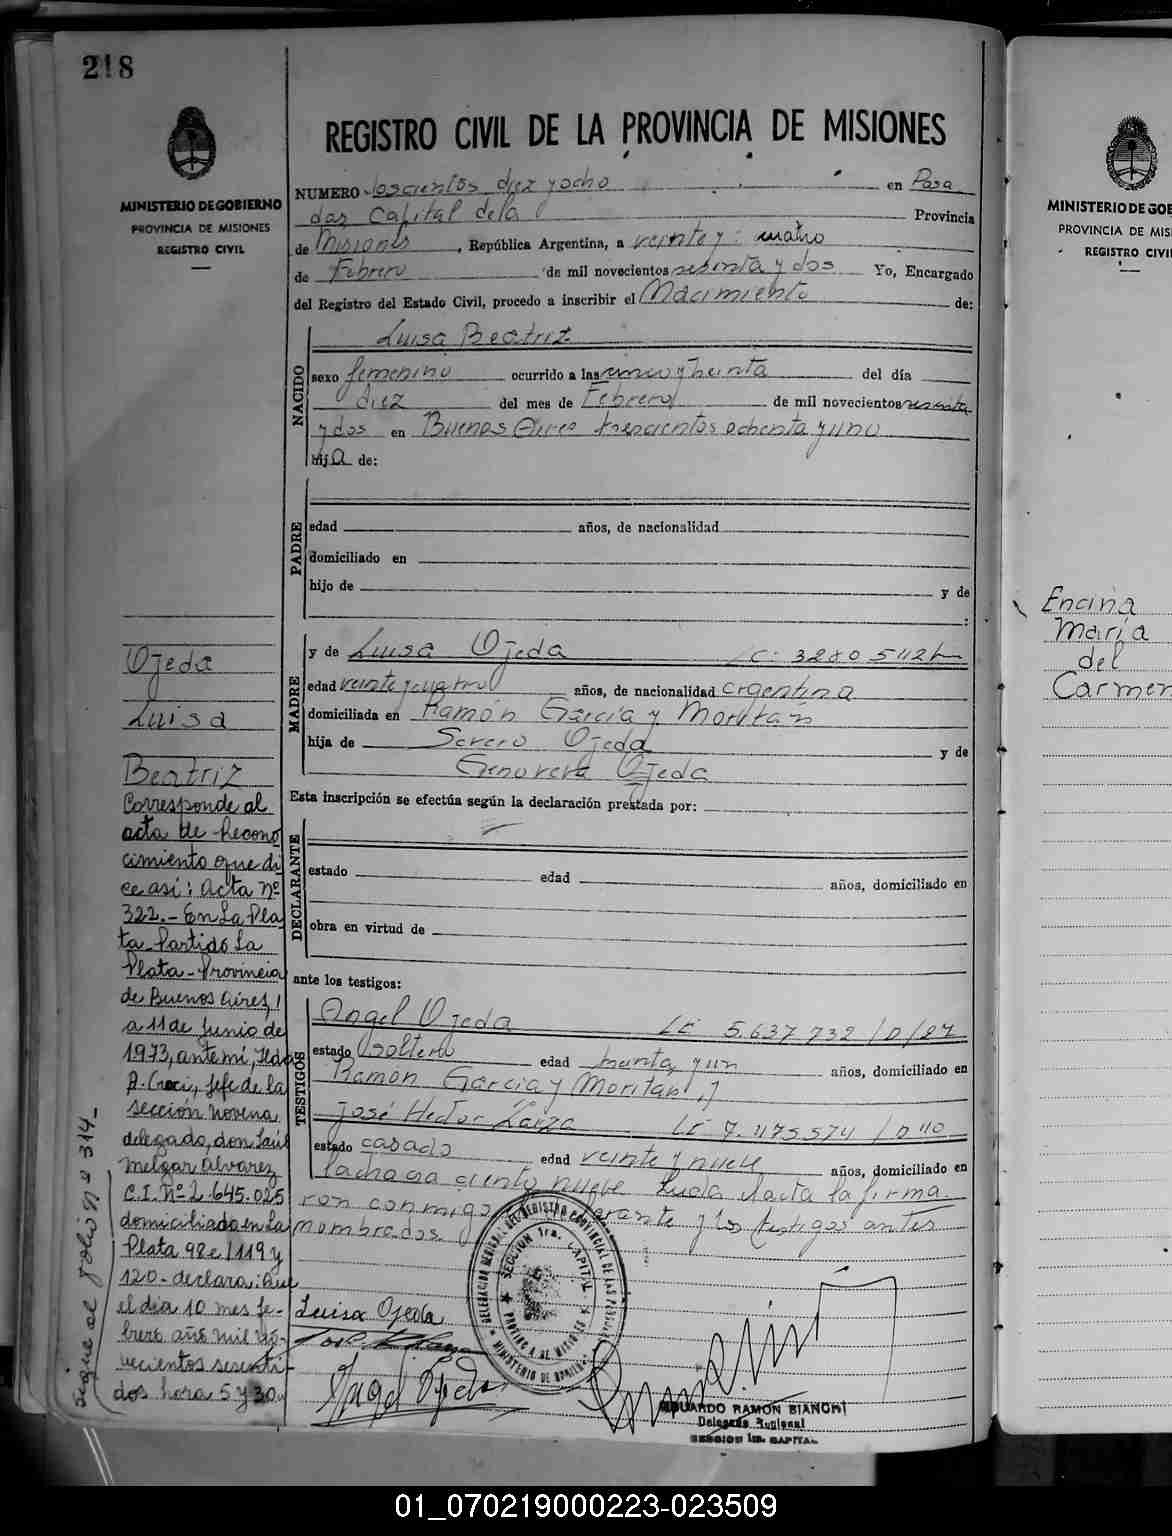 218
MINISTERIO DE GOBIERNO
PROVINCIA DE MISIONES
REGISTRO CIVIL
REGISTRO CIVIL DE LA PROVINCIA DE MISIONES
NUMERO doscientos diez y ocho en Posa
das Capital de la Provincia
de Misiones, República Argentina, a veinte y cuatro
de Febrero de mil novecientos sesenta y dos Yo, Encargado
del Registro del Estado Civil, procedo a inscribir el Nacimiento de:
NACIDO
Luisa Beatriz
sexo femenino ocurrido a las cinco y treinta del día
diez del mes de Febrero de mil novecientos sesenta
y dos en Buenos Aires trescientos ochenta y uno
hija de:
PADRE
edad años, de nacionalidad
domiciliado en
hijo de y de
MADRE
y de Luisa Ojeda LC:
edad veinte y cuatro años, de nacionalidad argentina
domiciliada en Ramón García y Moritán
hija de Severo Ojeda y de
Genoveva Ojeda
Esta inscripción se efectúa según la declaración prestada por:
DECLARANTE
estado edad años, domiciliado en
obra en virtud de
ante los testigos:
TESTIGOS
Angel Ojeda LE 5.637.732
estado soltero edad treinta y un años, domiciliado en
Ramón García y Moritan
José Hector
estado casado edad veinte y nueve años, domiciliado en
La chaca ciento nueve Leida el acta la firma
ron conmigo y los testigos antes
nombrados
Luisa Ojeda
Angel Ojeda
DELEGACION REGIONAL DEL REGISTRO PROVINCIAL DE LAS PERSONAS
SECCION 1ra. CAPITAL
PROVINCIA DE MISIONES
MINISTERIO DE GOBIERNO
EDUARDO RAMON BIANCHI
Delegado Regional
SECCION 1ra. CAPITAL
Ojeda
Luisa
Beatriz
Corresponde al
acta de recono
cimiento que di
ce así: Acta nº
322.- En La Pla
ta-Partido La
Plata-Provincia
de Buenos Aires,
a 11 de Junio de
1973, ante mí,
A. Croci, Jefe de la
sección novena
delegado, don Saúl
Melgar Alvarez
C.I. Nº 2.645.025
domiciliado en La
Plata 98 e/119 y
120-declara: Que
el día 10 mes fe-
brero año mil no-
vecientos sesenti-
dos hora 5 y 30
sigue al folio nº 314-
MINISTERIO DE GOB
PROVINCIA DE MIS
REGISTRO CIVI
Encina
María
del
Carmen
01_070219000223-023509